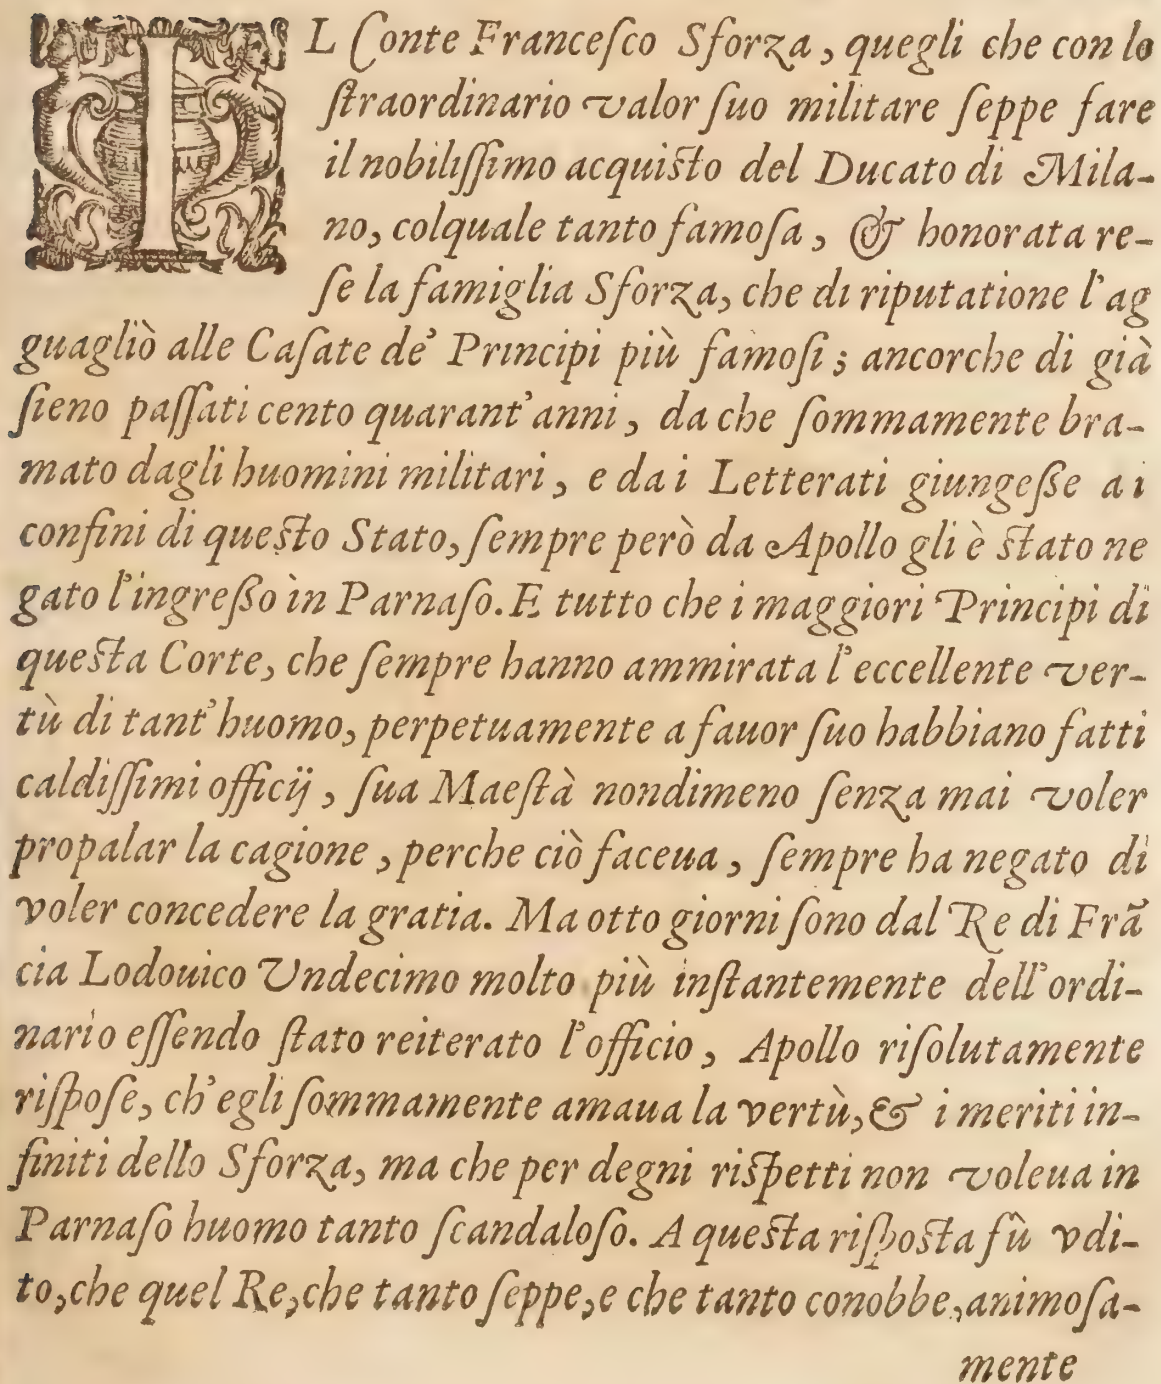 IL Conte Franceſco Sforza, quegli che con lo
ſtraordinario valor ſuo militare ſeppe fare
il nobiliſſimo acquiſto del Ducato di Mila-
no, colquale tanto famoſa, & honorata re-
ſe la famiglia Sforza, che di riputatione l'ag
guagliò alle Caſate de' Principi più famoſi; ancorche di già
ſieno paſſati cento quarant'anni, da che ſommamente bra-
mato dagli huomini militari, e da i Letterati giungeſſe a i
confini di queſto Stato, ſempre però da Apollo gli è ſtato ne
gato l'ingreſſo in Parnaſo. E tutto che i maggiori Principi di
queſta Corte, che ſempre hanno ammirata l'eccellente ver-
tù di tant'huomo, perpetuamente a fauor ſuo habbiano fatti
caldiſſimi officij, ſua Maeſtà nondimeno ſenza mai voler
propalar la cagione, perche ciò faceua, ſempre ha negato di
voler concedere la gratia. Ma otto giorni ſono dal Re di Frã
cia Lodouico Undecimo molto più inſtantemente dell'ordi-
nario eſſendo ſtato reiterato l'officio, Apollo riſolutamente
riſpoſe, ch'egli ſommamente amaua la vertù, & i meriti in-
finiti dello Sforza, ma che per degni riſpetti non voleua in
Parnaſo huomo tanto ſcandaloſo. A queſta riſpoſta fù vdi-
to, che quel Re, che tanto ſeppe, e che tanto conobbe, animoſa-
mente